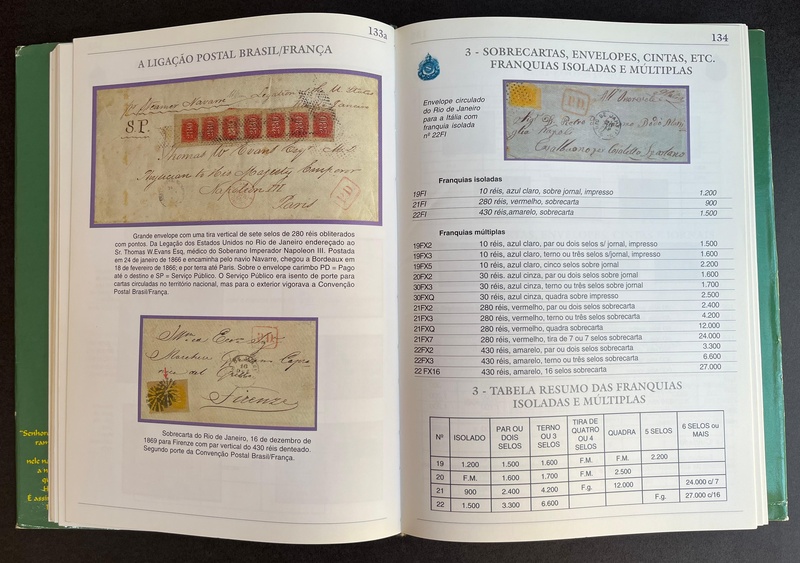 133a
A LIGAÇÃO POSTAL BRASIL/FRANÇA
S.P.
Thomas W Evans Esqr M.D.
Physician to His Majesty Emperor
Napoleon III
Paris
PD
Grande envelope com uma tira vertical de sete selos de 280 réis obliterados
com pontos. Da Legação dos Estados Unidos no Rio de Janeiro endereçado ao
Sr. Thomas W.Evans Esq, médico do Soberano Imperador Napoleon III. Postada
em 24 de janeiro de 1866 e encaminha pelo navio Navarre, chegou a Bordeaux em
18 de fevereiro de 1866; e por terra até Paris. Sobre o envelope carimbo PD = Pago
até o destino e SP = Serviço Público. O Serviço Público era isento de porte para
cartas circuladas no território nacional, mas para o exterior vigorava a Convenção
Postal Brasil/França.
PD
Firenze
Sobrecarta do Rio de Janeiro, 16 de dezembro de
1869 para Firenze com par vertical do 430 réis denteado.
Segundo porte da Convenção Postal Brasil/França.
134
3 - SOBRECARTAS, ENVELOPES, CINTAS, ETC.
FRANQUIAS ISOLADAS E MÚLTIPLAS
Envelope circulado
do Rio de Janeiro
para a Itália com
franquia isolada
nº 22FI
PD
Franquias isoladas
19FI 10 réis, azul claro, sobre jornal, impresso 1.200
21FI 280 réis, vermelho, sobrecarta 900
22FI 430 réis,amarelo, sobrecarta 1.500
Franquias múltiplas
19FX2 10 réis, azul claro, par ou dois selos s/ jornal, impresso 1.500
19FX3 10 réis, azul claro, terno ou três selos s/jornal, impresso 1.600
19FX5 10 réis, azul claro, cinco selos sobre jornal 2.200
20FX2 30 réis, azul cinza, par ou dois selos sobre jornal 1.600
30FX3 30 réis, azul cinza, terno ou três selos sobre jornal 1.700
30FXQ 30 réis, azul cinza, quadra sobre impresso 2.500
21FX2 280 réis, vermelho, par ou dois selos sobrecarta 2.400
21FX3 280 réis, vermelho, terno ou três selos sobrecarta 4.200
21FXQ 280 réis, vermelho, quadra sobrecarta 12.000
21FX7 280 réis, vermelho, tira de 7 ou 7 selos sobrecarta 24.000
22FX2 430 réis, amarelo, par ou dois selos sobrecarta 3.300
22FX3 430 réis, amarelo, terno ou três selos sobrecarta 6.600
22 FX16 430 réis, amarelo, 16 selos sobrecarta 27.000
3 - TABELA RESUMO DAS FRANQUIAS
ISOLADAS E MÚLTIPLAS
Nº ISOLADO PAR OU DOIS SELOS TERNO OU 3 SELOS TIRA DE QUATRO OU 4 SELOS QUADRA 5 SELOS 6 SELOS ou MAIS
19 1.200 1.500 1.600 F.M. F.M. 2.200
20 F.M. 1.600 1.700 F.M. 2.500
21 900 2.400 4.200 F.g. 12.000 24.000 c/ 7
22 1.500 3.300 6.600 F.g. 27.000 c/16
"Senhor
nele n
É assi